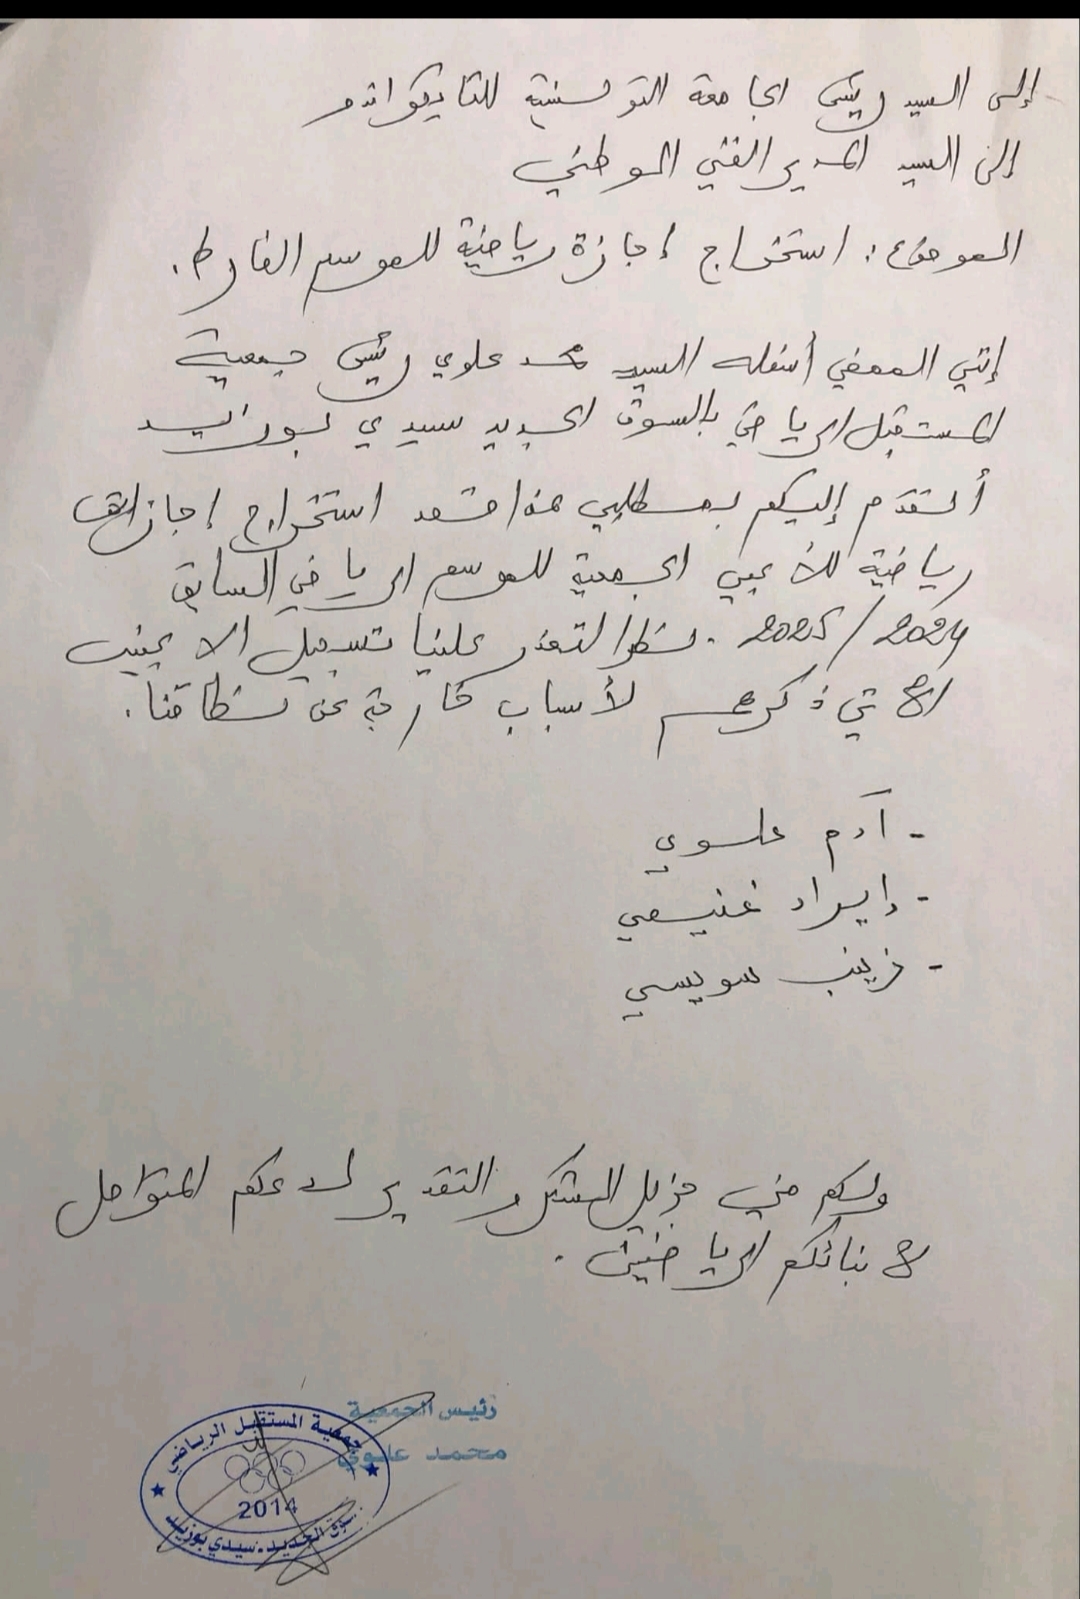 إلى السيد رئيس الجامعة التونسية للتايكواندو
إلى السيد المدير الفني الوطني
الموضوع : استخراج إجازة رياضية للموسم الفارط.
إنني الممضي أسفله السيد محمد علوي رئيس جمعية
المستقبل الرياضي بالسوق الجديد سيدي بوزيد
أتقدم إليكم بمطلبي هذا قصد استخراج إجازات
رياضية للاعبي الجمعية للموسم الرياضي السابق
2024/2025. نظرا لتعذر علينا تسجيل الاعبين
الآتي ذكرهم لأسباب خارجة عن نطاقنا.
- آدم علوي
- إياد غنيمي
- زينب سويسي
ولكم مني جزيل الشكر والتقدير لدعكم المتواصل
لأبنائكم الرياضيين.
رئيس الجمعية
محمد علوي
جمعية المستقبل الرياضي
2014
سوق الجديد - سيدي بوزيد